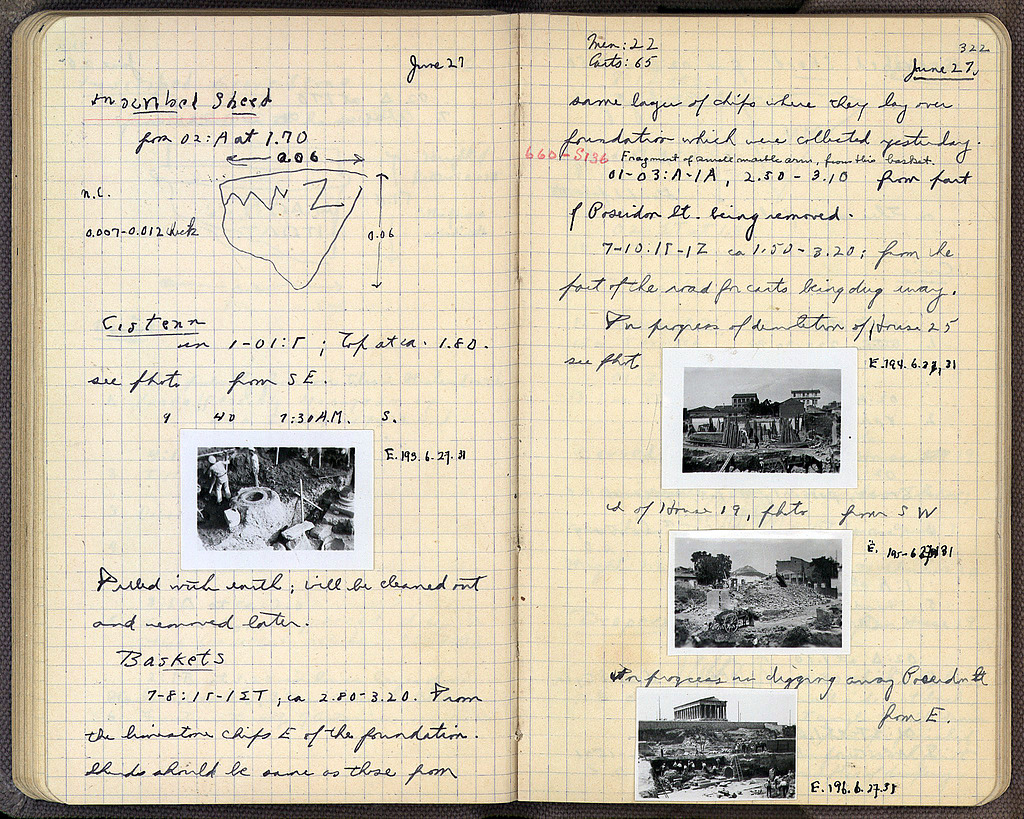 June 27
Inscribed Sherd
from 02:A at 1.70
0.06
n.c.
0.007-0.012 thick
0.06
Cistern
in 1-01:Γ ; Top at ca. 1.80.
see photo from SE.
9 40 7:30 A.M. S.
E. 193. 6.27.31
Filled with earth; will be cleaned out
and removed later.
Baskets
7-8:ΙΕ-ΙΣΤ ; ca 2.80-3.20. From
the limestone chips E of the foundation.
Sherds should be same as those from
Men: 22
Carts: 65
322
June 27,
same layer of chips where they lay over
foundation which were collected yesterday.
660-S136 Fragment of small marble arm, from this basket.
01-03:A-1A, 2.50-3.10 from part
of Poseidon St. being removed.
ca 1.50-3.20; from the
part of the road for carts being dug away.
In progress of demolition of House 25
see photo
E. 194. 6.27.31
id of House 19, photo from SW
E. 195-6.27.31
In progress in digging away Poseidon St
from E.
E. 196. 6.27.31